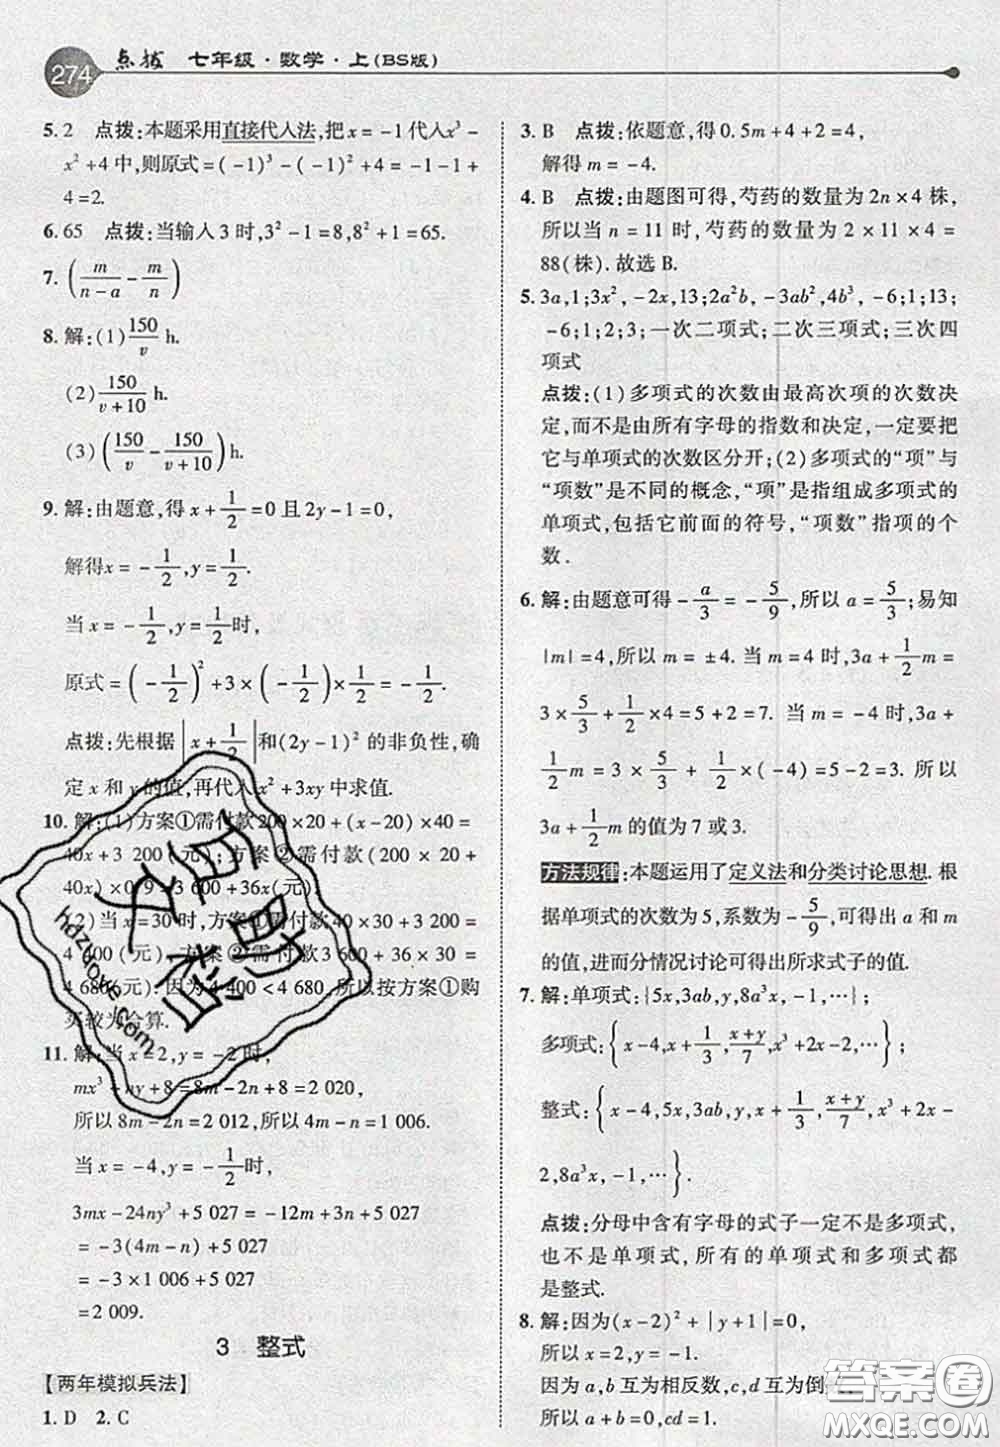 274 点拨 七年级·数学·上(BS版)
5. 2 点拨:本题采用直接代入法,把 x = -1 代入 x³ -
x² +4 中,则原式 = (-1)³ - (-1)² +4 = -1-1+
4 =2.
6. 65 点拨:当输入 3 时,3² -1 =8,8² +1 =65.
7. (m/(n-a) - m/n)
8. 解:(1) 150/v h.
(2) 150/(v+10) h.
(3) (150/v - 150/(v+10)) h.
9. 解:由题意,得 x + 1/2 =0 且 2y-1=0,
解得 x = - 1/2, y = 1/2.
当 x = - 1/2, y = 1/2 时,
原式 = (- 1/2)² +3 × (- 1/2) × 1/2 = - 1/2.
点拨:先根据 |x + 1/2| 和(2y-1)² 的非负性,确
定 x 和 y 的值,再代入 x² +3xy 中求值.
10. 解:(1)方案①需付款 200 ×20 +(x -20) ×40 =
40x +3 200(元);方案②需付款(200 × 20 +
40x) ×0.9 =3 600 +36x(元).
(2)当 x = 30 时,方案①需付款 40x + 3 200 =
4 400(元),方案②需付款 3 600 + 36x =
4 680(元).因为 4 400 <4 680,所以按方案①购
买较为合算.
11. 解:当 x =2,y = -2 时,
mx³ + ny +8 =8m -2n +8 =2 020,
所以 8m -2n =2 012,所以 4m -n =1 006.
当 x = -4,y = - 1/2 时,
3mx -24ny³ +5 027 = -12m +3n +5 027
= -3(4m -n) +5 027
= -3 ×1 006 +5 027
=2 009.
3 整式
【两年模拟兵法】
1. D 2. C
3. B 点拨:依题意,得 0.5m +4 +2 =4,
解得 m = -4.
4. B 点拨:由题图可得,芍药的数量为 2n ×4 株,
所以当 n = 11 时,芍药的数量为 2 × 11 × 4 =
88(株).故选 B.
5. 3a,1;3x², -2x,13;2a²b, -3ab²,4b³, -6;1;13;
-6;1;2;3;一次二项式;二次三项式;三次四
项式
点拨:(1)多项式的次数由最高次项的次数决
定,而不是由所有字母的指数和决定,一定要把
它与单项式的次数区分开;(2)多项式的“项”与
“项数”是不同的概念,“项”是指组成多项式的
单项式,包括它前面的符号,“项数”指项的个
数.
6. 解:由题意可得 - a/3 = - 5/9,所以 a = 5/3;易知
|m| =4,所以 m = ±4. 当 m =4 时,3a + 1/2 m =
3 × 5/3 + 1/2 ×4 =5 +2 =7. 当 m = -4 时,3a +
1/2 m =3 × 5/3 + 1/2 ×( -4) =5 -2 =3. 所以
3a + 1/2 m 的值为 7 或 3.
方法规律:本题运用了定义法和分类讨论思想. 根
据单项式的次数为 5,系数为 - 5/9,可得出 a 和 m
的值,进而分情况讨论可得出所求式子的值.
7. 解:单项式:{5x,3ab,y,8a³x, -1,…};
多项式:{x -4,x + 1/3, (x+y)/7, x³ +2x -2,…};
整式:{x -4,5x,3ab,y,x + 1/3, (x+y)/7, x³ +2x -
2,8a³x, -1,…}.
点拨:分母中含有字母的式子一定不是多项式,
也不是单项式,所有的单项式和多项式都
是整式.
8. 解:因为(x -2)² + |y +1| =0,
所以 x =2,y = -1.
因为 a,b 互为相反数,c,d 互为倒数,
所以 a +b =0,cd =1.
hdzuoye.com
答案圈
MXQE.COM